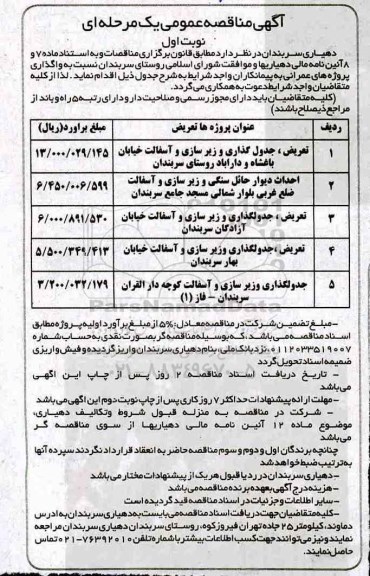 آگهی مناقصه عمومی یک مرحله ای
نوبت اول
دهیاری سربندان در نظر دارد مطابق قانون برگزاری مناقصات و به استناد ماده ۷ و
۸ آئین نامه مالی دهیاریها و موافقت شورای اسلامی روستای سربندان نسبت به واگذاری
پروژه های عمرانی به پیمانکاران واجد شرایط به شرح جدول ذیل اقدام نماید . لذا از کلیه
متقاضیان واجد شرایط دعوت به همکاری می گردد.
(کلیه متقاضیان باید دارای مجوز رسمی و صلاحیت دار و دارای رتبه ۵ راه و باند از
مراجع ذیصلاح باشند)
ردیف عنوان پروژه ها تعریض مبلغ براورد(ریال)
۱ تعریض ، جدول گذاری و زیر سازی و آسفالت خیابان باغشاه و داراباد روستای سربندان ۱۳/۰۰۰/۰۲۹/۱۴۵
۲ احداث دیوار حائل سنگی و زیر سازی و آسفالت ضلع غربی بلوار شمالی مسجد جامع سربندان ۶/۴۵۰/۰۰۶/۵۹۹
۳ تعریض ، جدولگذاری و زیر سازی و آسفالت خیابان آزادگان سربندان ۶/۰۰۰/۸۹۱/۵۳۰
۴ تعریض ،جدولگذاری وزیر سازی و آسفالت خیابان بهار سربندان ۵/۵۰۰/۳۴۹/۴۱۳
۵ جدولگذاری وزیر سازی و آسفالت کوچه دار القران سربندان – فاز (۱) ۳/۲۰۰/۰۳۲/۱۷۹
-مبلغ تضمین شرکت در مناقصه معادل: ۵% از مبلغ برآورد اولیه پروژه مطابق
اسناد مناقصه می باشد، که بوسیله مناقصه گر بصورت نقدی به حساب شماره
۰۱۱۲۰۳۳۵۱۹۰۰۷ نزد بانک ملی، بنام دهیاری سربندان واریز گردیده و فیش واریزی
ضمیمه اسناد تحویل گردد
- تاریخ دریافت اسناد مناقصه ۲ روز پس از چاپ این اگهی
می باشد
-مهلت ارائه پیشنهادات حداکثر ۷ روز کاری پس از چاپ نوبت دوم این اگهی می باشد
- شرکت در مناقصه به منزله قبول شروط وتکالیف دهیاری،
موضوع ماده ۱۲ آئین نامه مالی دهیاریها از سوی مناقصه گر
می باشد
چنانچه برندگان اول و دوم و سوم مناقصه حاضر به انعقاد قرارداد نگردند سپرده آنها
به ترتیب ضبط خواهد شد
-دهیاری سربندان در رد یا قبول هر یک از پیشنهادات مختار می باشد
-هزینه درج آگهی بعهده برنده مناقصه می باشد
-سایر اطلاعات و جزئیات در اسناد مناقصه قید گردیده است
-کلیه متقاضیان جهت دریافت اسناد مناقصه می بایست به دهیاری سربندان به ادرس
دماوند، کیلومتر ۲۵ جاده تهران فیروزکوه، روستای سربندان دهیاری سربندان مراجعه
نمایند و نیز می توانند جهت کسب اطلاعات بیشتر با شماره تلفن ۷۶۳۹۲۰۱۰-۰۲۱ تماس
حاصل نمایند.